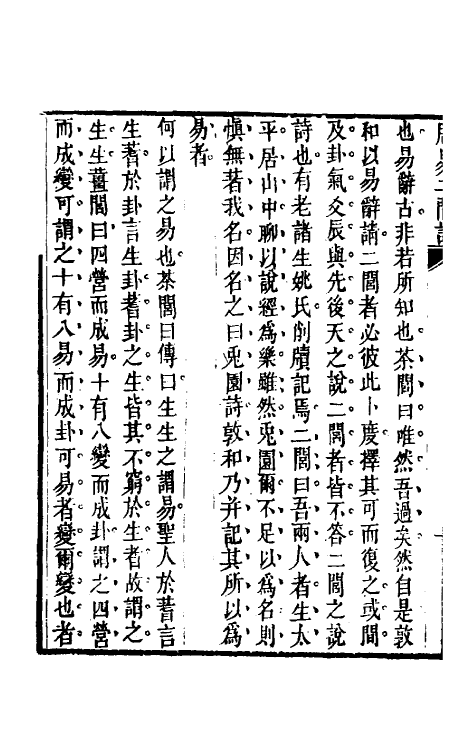 也易辭古非若所知也茶閭曰唯然吾過矣然自是敦
和以易辭請二閭者必彼此卜慶擇其可而復之或間
及卦氣爻辰與先後天之說二閭者皆不答二閭之說
詩也有老諸生姚氏削牘記焉二閭曰吾兩人者生太
平居山中聊以說經爲樂雖然兎園爾不足以爲名則
愼無若我名因名之曰兎園詩敦和乃并記其所以爲
易者
何以謂之易也茶閭曰傳曰生生之謂易聖人於蓍言
生蓍於卦言生卦蓍卦之生皆其不窮於生者故謂之
生生薑閭曰四營而成易十有八變而成卦謂之四營
而成變可謂之十有八易而成卦可易者變爾變也者